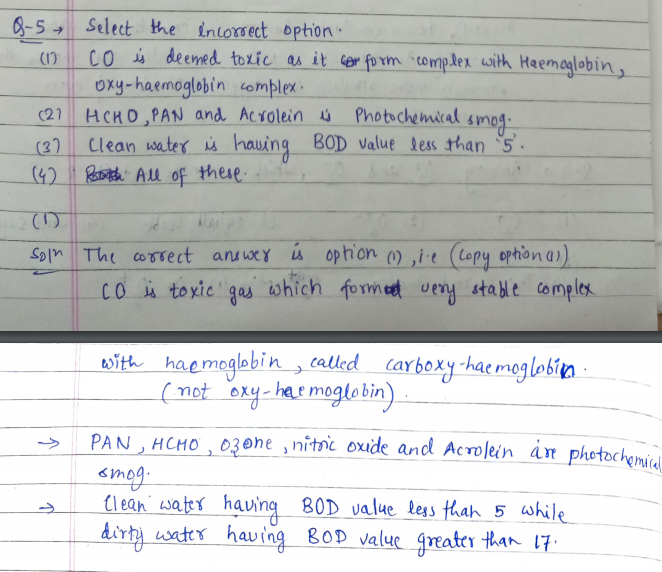 Q-5 → Select the incorrect option.
(1) CO is deemed toxic as it form complex with Haemoglobin,
oxy-haemoglobin complex.
(2) HCHO, PAN and Acrolein is Photochemical smog.
(3) Clean water is having BOD value less than '5'.
(4) All of these.
(1)
Soln The correct answer is option (1), i.e (copy option(1))
CO is toxic gas which formed very stable complex
with haemoglobin, called carboxy-haemoglobin.
(not oxy-haemoglobin).
→ PAN, HCHO, Ozone, nitric oxide and Acrolein are photochemical
smog.
→ Clean water having BOD value less than 5 while
dirty water having BOD value greater than 17.